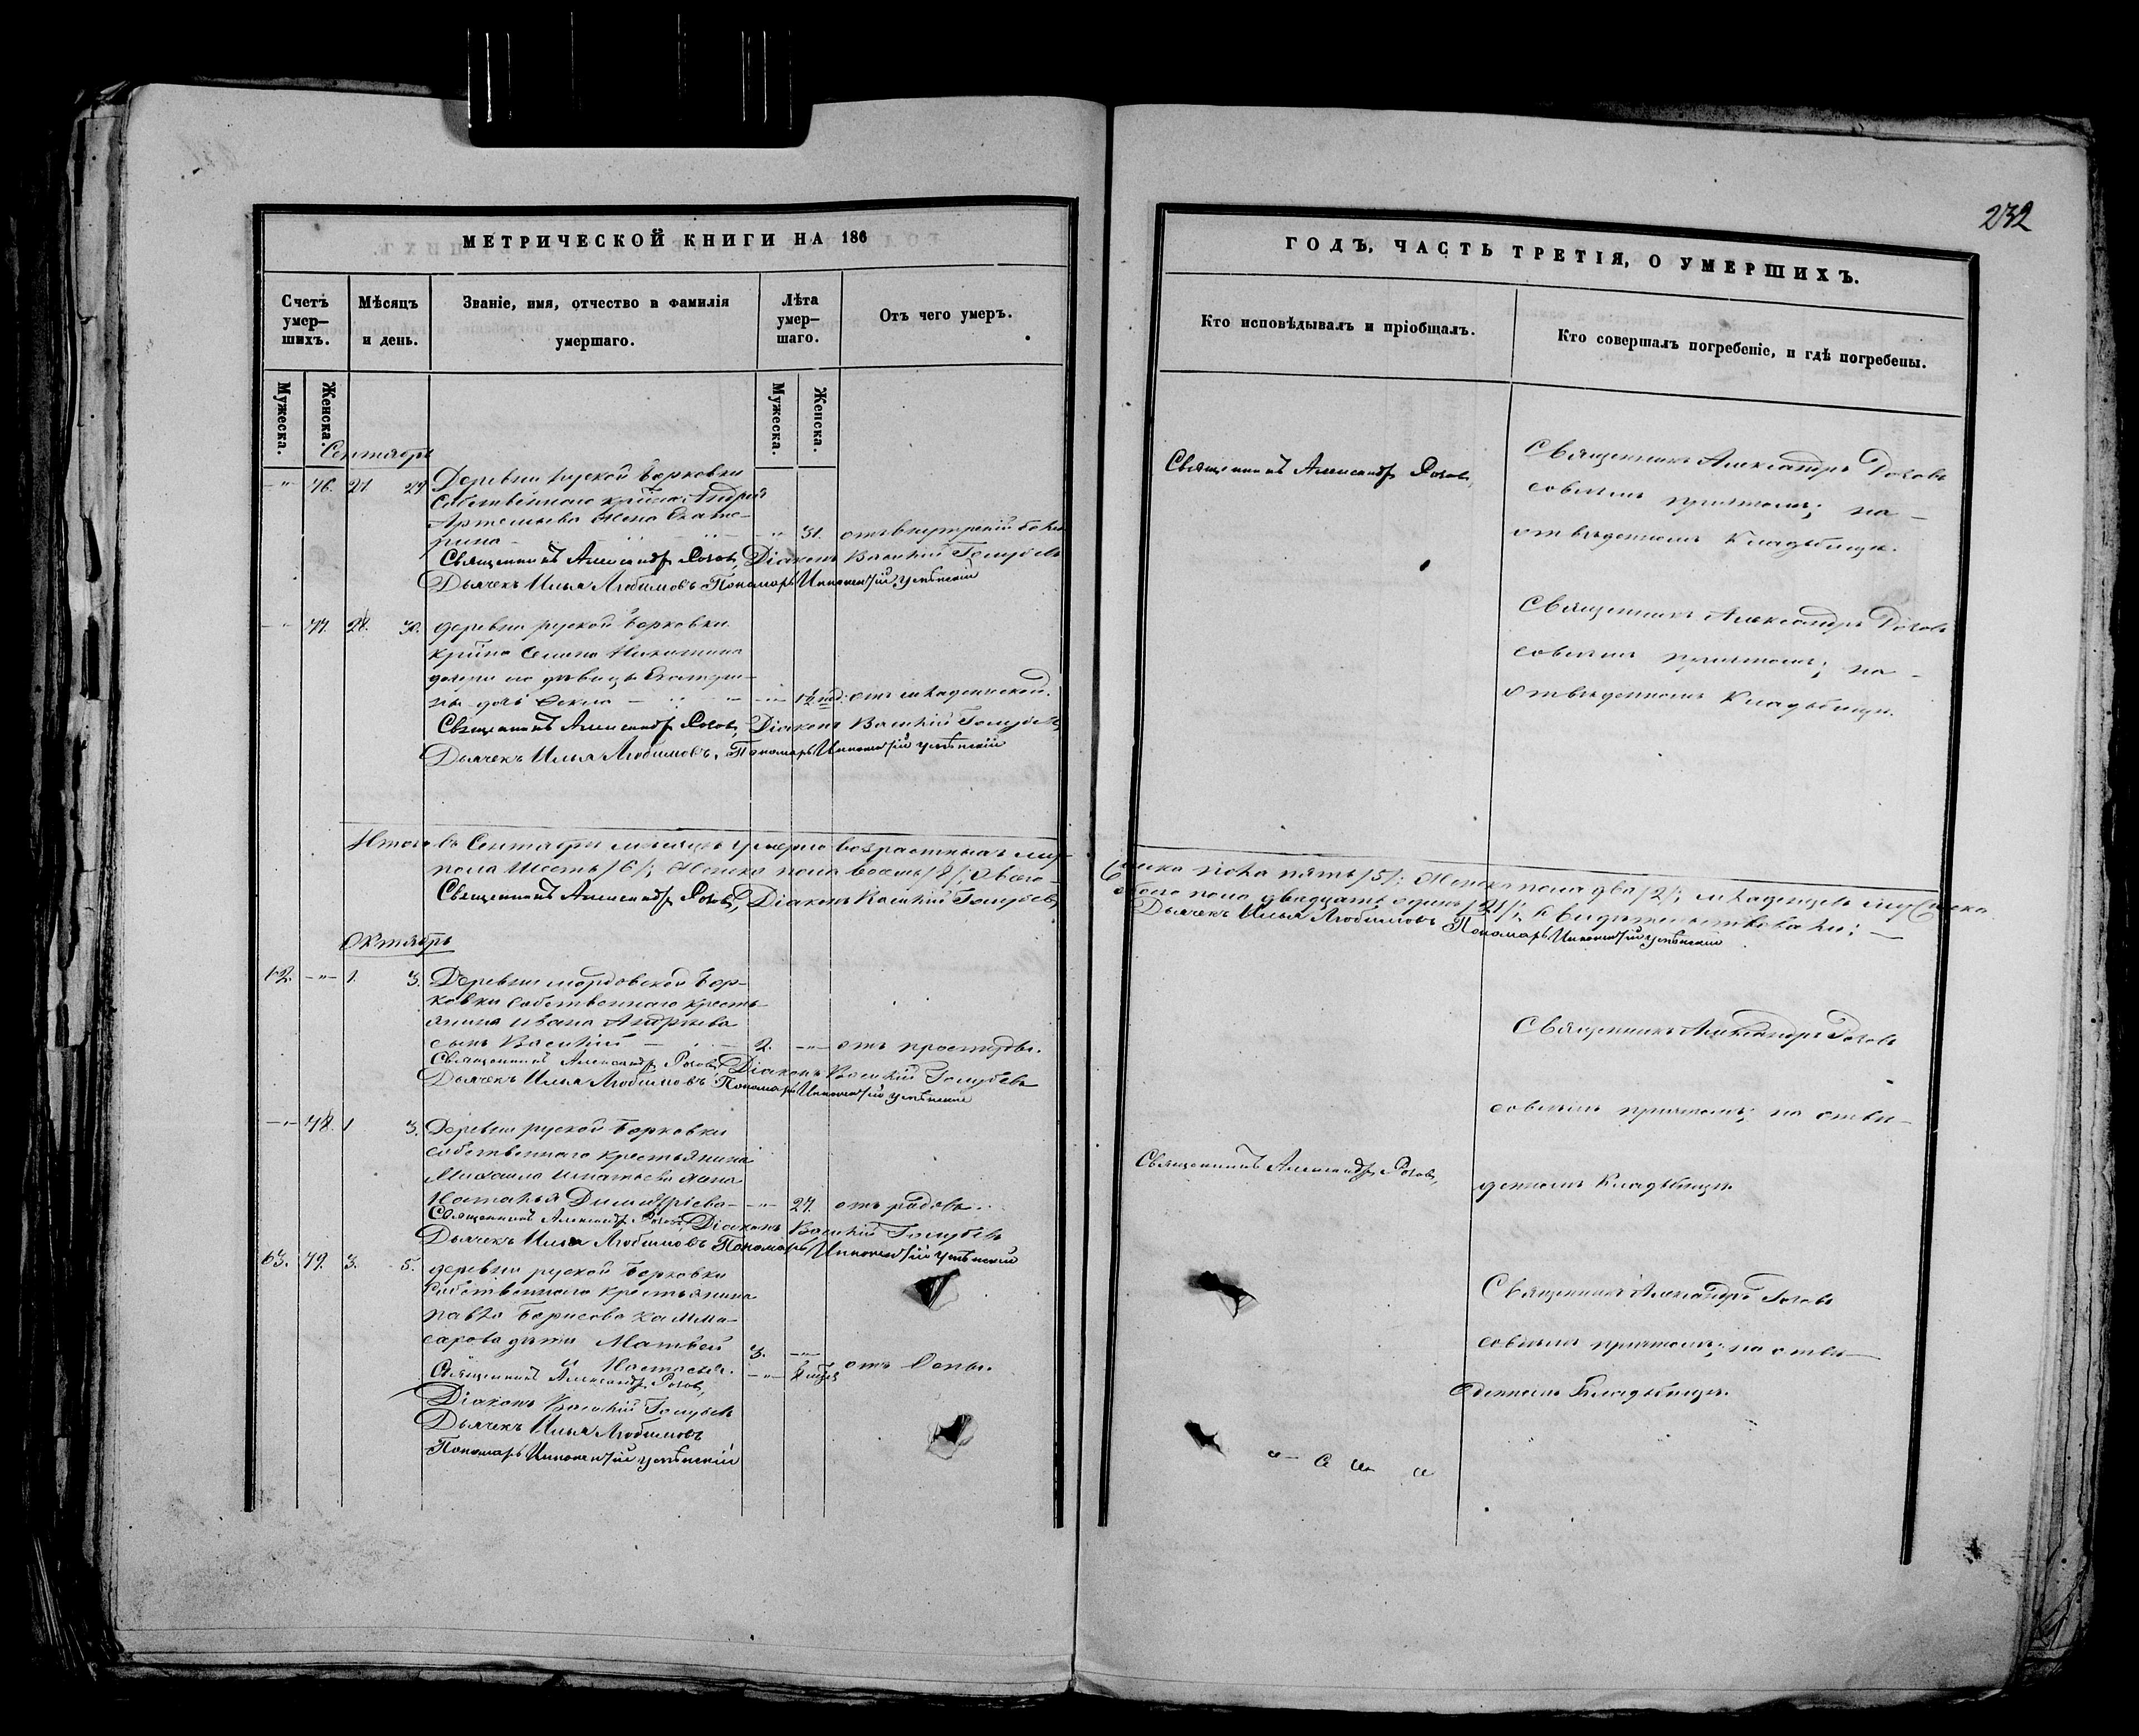 232
МЕТРИЧЕСКОЙ КНИГИ НА 186
Счетъ умер-шихъ.
Мѣсяцъ и день.
Званіе, имя, отчество и фамилія умершаго.
Лѣта умер-шаго.
Отъ чего умеръ.
Мужеска.
Женска.
Мужеска.
Женска.
Сентябрь
46. 21 24 Деревни руской Борковки
Собственнаго крпна Андрея
Артемьева жена Екате-
рина 31. отъ внутренней боли
Священникъ Александръ Роговъ, Діаконъ Василій Голубевъ
Дьячекъ Илья Любимовъ Пономарь Иннокентій Успенскій
28. 30. деревни руской Борковки
Семена Никитина
дочери его дѣвицы Екатери-
ны дочь Фекла нед. отъ младенческой.
Священникъ Александръ Роговъ, Діаконъ Василій Голубевъ
Дьячекъ Илья Любимовъ, Пономарь Иннокентій Успенскій
Итого въ Сентябрѣ мѣсяцѣ умерло возрастныхъ му-
пола шесть /6/; женска пола восемь /8/; обоего
Священникъ Александръ Роговъ, Діаконъ Василій Голубевъ
Октябрь
62. 1. 3. Деревни мордовской Бор-
ковки собственнаго кресть-
янина Ивана Андреева
сынъ Василій 2. отъ простуды.
Священникъ Александръ Роговъ, Діаконъ Василій Голубевъ
Дьячекъ Илья Любимовъ, Пономарь Иннокентій Успенскій
48. 1 3. Деревни руской Борковки
собственнаго крестьянина
Михаила Игнатьева жена
Наталья Димитріева 27. отъ родовъ.
Священникъ Александръ Роговъ, Діаконъ Василій Голубевъ
Дьячекъ Илья Любимовъ Пономарь Иннокентій Успенскій
63. 49. 3. 5. деревни руской Борковки
Собственнаго крестьянина
Павла Борисова
дѣти Матвей 3.
и Настасья. отъ Оспы.
Священникъ Александръ Роговъ,
Діаконъ Василій Голубевъ
Дьячекъ Илья Любимовъ
Пономарь Иннокентій Успенскій
ГОДЪ, ЧАСТЬ ТРЕТІЯ, О УМЕРШИХЪ.
Кто исповѣдывалъ и пріобщалъ.
Кто совершалъ погребеніе, и гдѣ погребены.
Священникъ Александръ Роговъ,
Священникъ Александръ Роговъ
совсѣмъ причтомъ; на
отведенномъ Кладбищѣ.
Священникъ Александръ Роговъ
совсѣмъ причтомъ; на
отведенномъ Кладбищѣ.
жска пола пять /5/; женска пола два /2/; младенцевъ мужеска
пола двадцать одинъ /21/;
Дьячекъ Илья Любимовъ Пономарь Иннокентій Успенскій
Священникъ Александръ Роговъ
совсѣмъ причтомъ; на отве-
Священникъ Александръ Роговъ,
денномъ Кладбищѣ.
Священникъ Александръ Роговъ
совсѣмъ причтомъ; на отве-
денномъ Кладбищѣ.